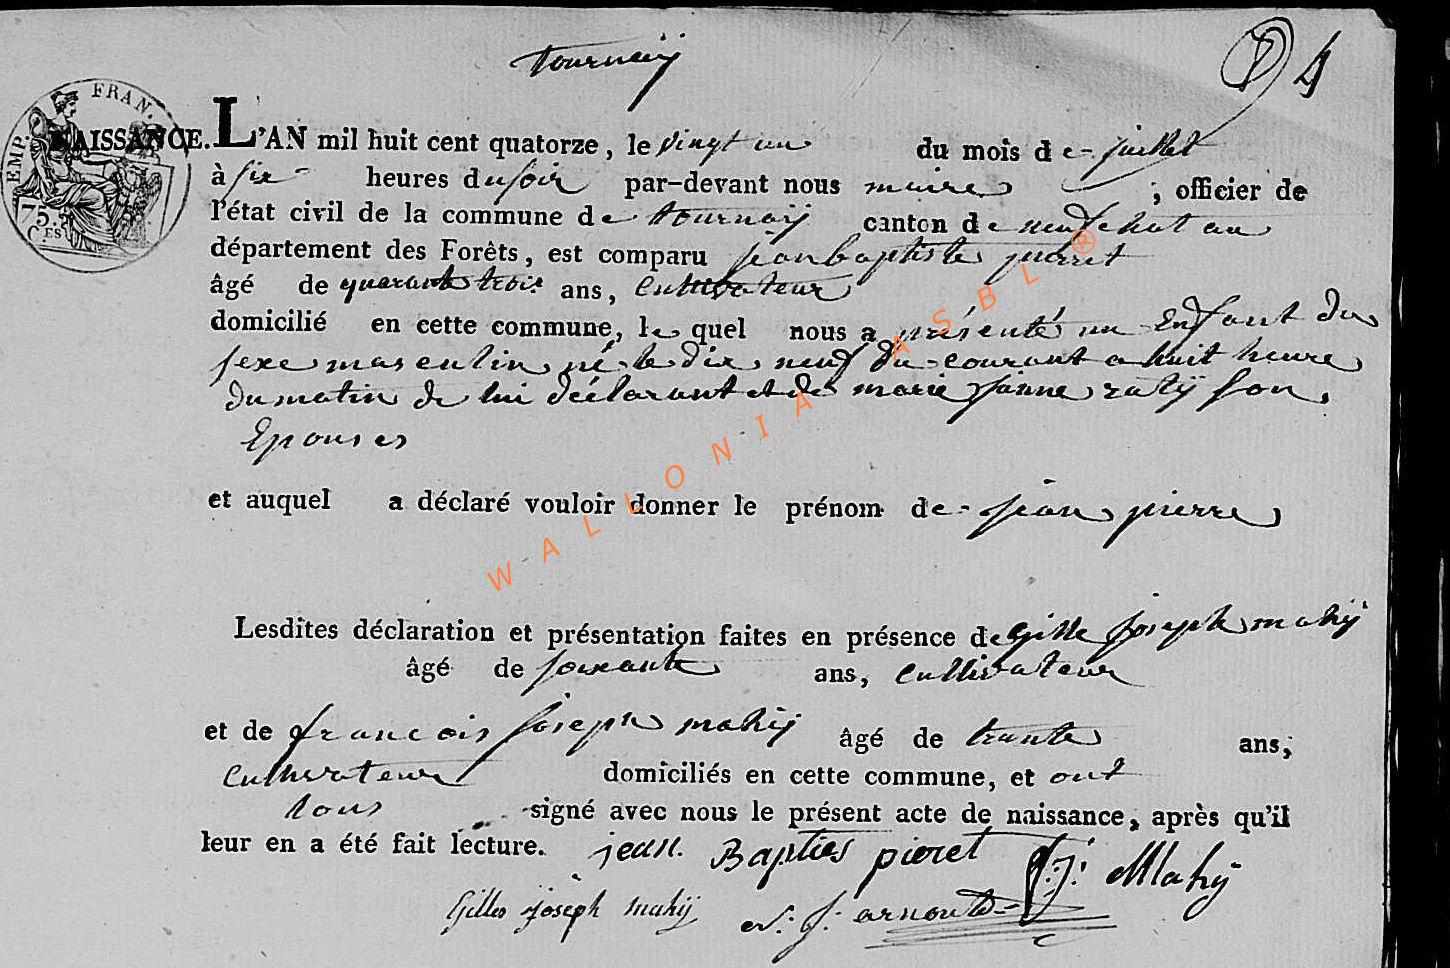 tournaÿ
4
EMP. FRAN.
75.
C.ES
NAISSANCE. L'AN mil huit cent quatorze, le vingt un du mois de juillet
à six heures du soir par-devant nous maire ; officier de
l'état civil de la commune de tournaÿ canton de neufchateau
département des Forêts, est comparu jean baptiste pierret
âgé de quarante trois ans, Cultivateur
domicilié en cette commune, le quel nous a présenté un Enfant du
sexe masculin né le dix neuf du courant a huit heure
du matin de lui déclarant et de marie janne ratÿ son
Epouse
et auquel a déclaré vouloir donner le prénom de jean pierre
Lesdites déclaration et présentation faites en présence de Gille joseph mahÿ
âgé de soixante ans, cultivateur
et de francois joseph mahÿ âgé de trante ans,
Cultivateur domiciliés en cette commune, et ont
tous signé avec nous le présent acte de naissance, après qu'il
leur en a été fait lecture. jean Bapties pieret f: j: Mahÿ
Gilles joseph mahÿ
WALLONIA ASBL®